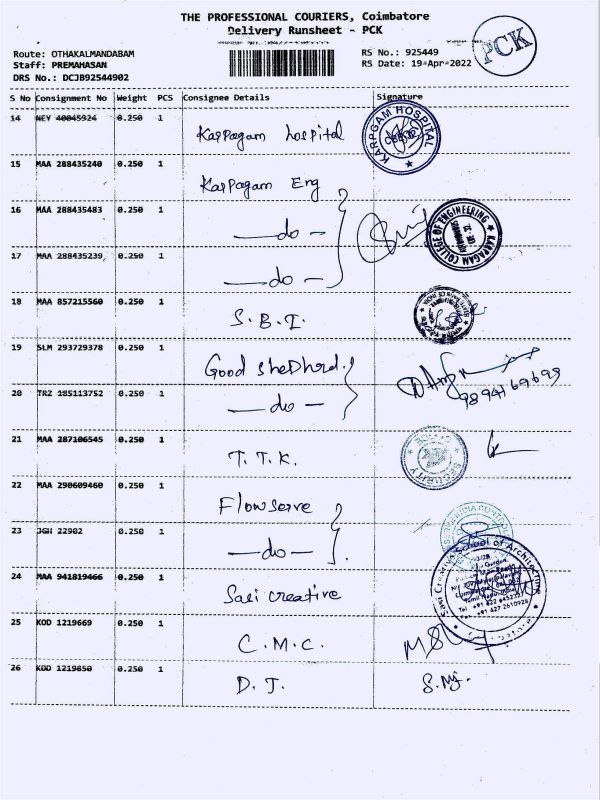 THE PROFESSIONAL COURIERS, Coimbatore
Delivery Runsheet - PCK
PCK
Route: OTHAKALMANDABAM
Staff: PREMAHASAN
DRS No.: DCJB92544902
RS No.: 925449
RS Date: 19-Apr-2022
S No Consignment No Weight PCS Consignee Details Signature
14 NEY 40045924 0.250 1 Karpagam hospital
KARPGAM HOSPITAL
15 MAA 288435240 0.250 1 Karpagam Eng
16 MAA 288435483 0.250 1 — do —
KARPAGAM COLLEGE OF ENGINEERING
17 MAA 288435239 0.250 1 — do —
18 MAA 857215560 0.250 1 S.B.I.
19 SLM 293729378 0.250 1 Good shepherd.
20 TRZ 185113752 0.250 1 — do —
9894169699
21 MAA 287106545 0.250 1 T.T.K.
SECURITY
22 MAA 290609460 0.250 1 Flowserve
23 JGH 22902 0.250 1 — do —
24 MAA 941819466 0.250 1 Sasi creative
Sasi Creative School of Architecture
25 KOD 1219669 0.250 1 C.M.C.
26 KOD 1219850 0.250 1 D.J.